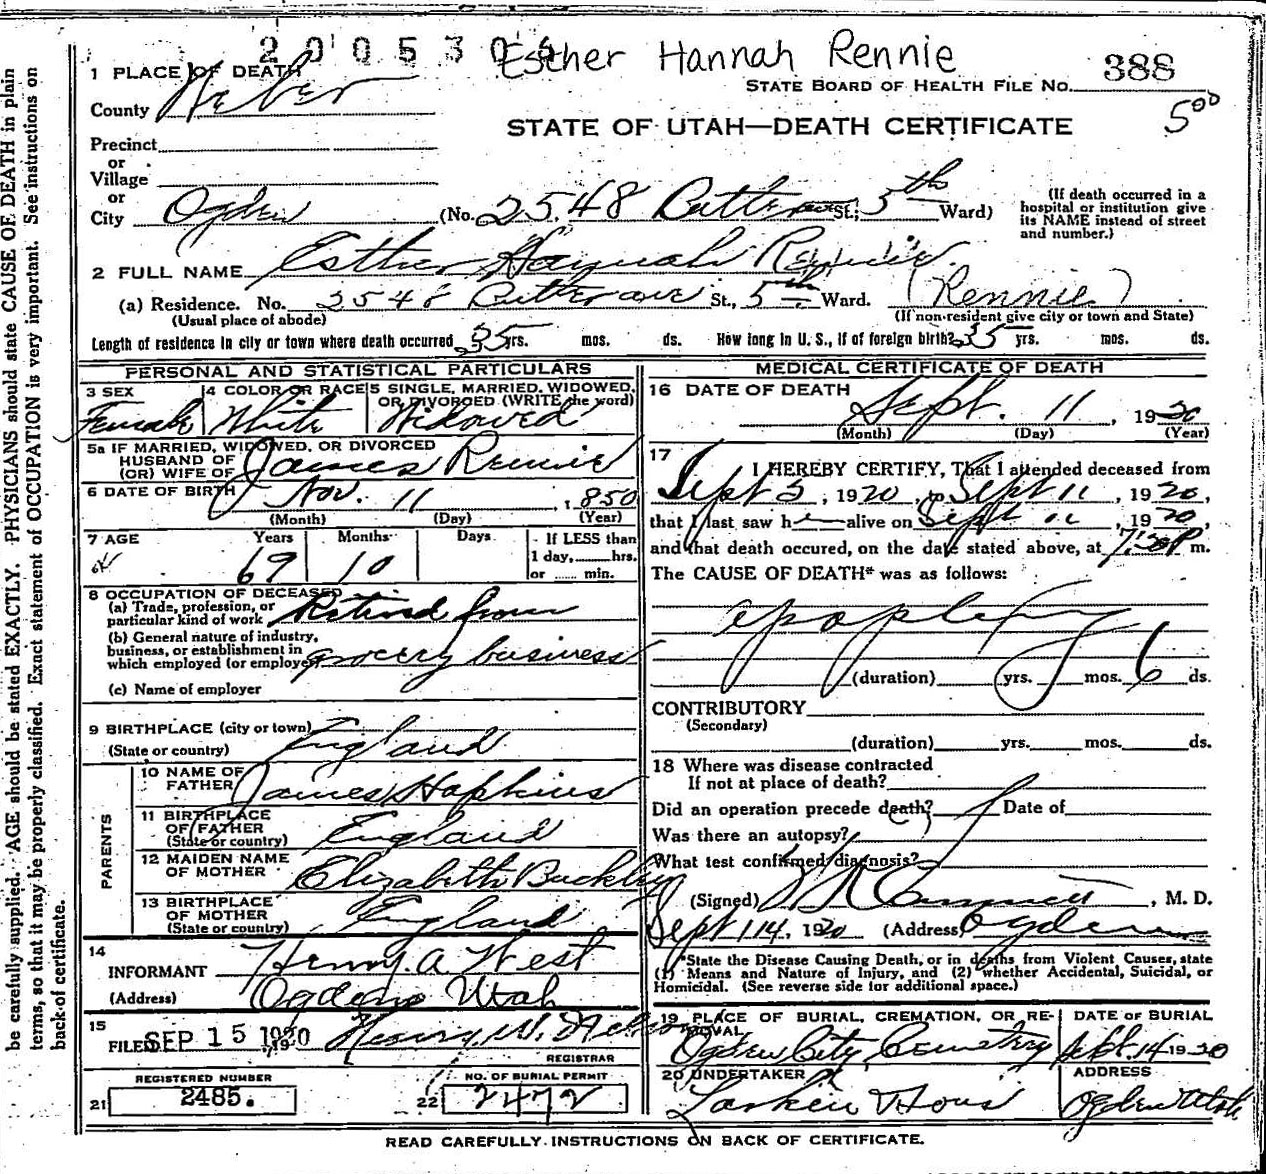 2005304
Esther Hannah Rennie
388
STATE BOARD OF HEALTH FILE NO.
5 00
STATE OF UTAH—DEATH CERTIFICATE
1 PLACE OF DEATH
County Weber
Precinct
or
Village
or
City Ogden (No. 2548 St.; 5th Ward)
(If death occurred in a hospital or institution give its NAME instead of street and number.)
2 FULL NAME Esther Hannah Rennie
(a) Residence. No. 2548 ave St., 5th Ward. (Rennie)
(Usual place of abode) (If non-resident give city or town and State)
Length of residence in city or town where death occurred 35 yrs. mos. ds. How long in U. S., if of foreign birth? 35 yrs. mos. ds.
PERSONAL AND STATISTICAL PARTICULARS
3 SEX 4 COLOR OR RACE 5 SINGLE, MARRIED, WIDOWED, OR DIVORCED (WRITE the word)
Female White Widowed
5a IF MARRIED, WIDOWED, OR DIVORCED
HUSBAND OF
(OR) WIFE OF James Rennie
6 DATE OF BIRTH Nov. 11, 1850
(Month) (Day) (Year)
7 AGE Years Months Days If LESS than
1 day, hrs.
or min.
69 10
8 OCCUPATION OF DECEASED
(a) Trade, profession, or particular kind of work Retired from
(b) General nature of industry, business, or establishment in which employed (or employer) grocery business
(c) Name of employer
9 BIRTHPLACE (city or town)
(State or country) England
PARENTS
10 NAME OF FATHER James Hopkins
11 BIRTHPLACE OF FATHER (State or country) England
12 MAIDEN NAME OF MOTHER Elizabeth Buckley
13 BIRTHPLACE OF MOTHER (State or country) England
14
INFORMANT Henry A West
(Address) Ogden Utah
15
FILED SEP 15 1920 Henry W. Nelson
REGISTRAR
REGISTERED NUMBER NO. OF BURIAL PERMIT
21 2485. 22 2472
MEDICAL CERTIFICATE OF DEATH
16 DATE OF DEATH
Sept. 11, 1920
(Month) (Day) (Year)
17
I HEREBY CERTIFY, That I attended deceased from
Sept 5, 1920, to Sept 11, 1920,
that I last saw h alive on Sept 11, 1920,
and that death occured, on the date stated above, at 7:30 P m.
The CAUSE OF DEATH* was as follows:
apoplexy
(duration) yrs. mos. 6 ds.
CONTRIBUTORY
(Secondary)
(duration) yrs. mos. ds.
18 Where was disease contracted
If not at place of death?
Did an operation precede death? Date of
Was there an autopsy?
What test confirmed diagnosis?
(Signed) , M. D.
Sept 14, 1920 (Address) Ogden
*State the Disease Causing Death, or in deaths from Violent Causes, state
(1) Means and Nature of Injury, and (2) whether Accidental, Suicidal, or
Homicidal. (See reverse side for additional space.)
19 PLACE OF BURIAL, CREMATION, OR REMOVAL DATE OF BURIAL
Ogden City Cemetery Sept. 14 1920
20 UNDERTAKER ADDRESS
Larkin & Sons Ogden Utah
READ CAREFULLY INSTRUCTIONS ON BACK OF CERTIFICATE.
be carefully supplied. AGE should be stated EXACTLY. PHYSICIANS should state CAUSE OF DEATH in plain
terms, so that it may be properly classified. Exact statement of OCCUPATION is very important. See instructions on
back of certificate.